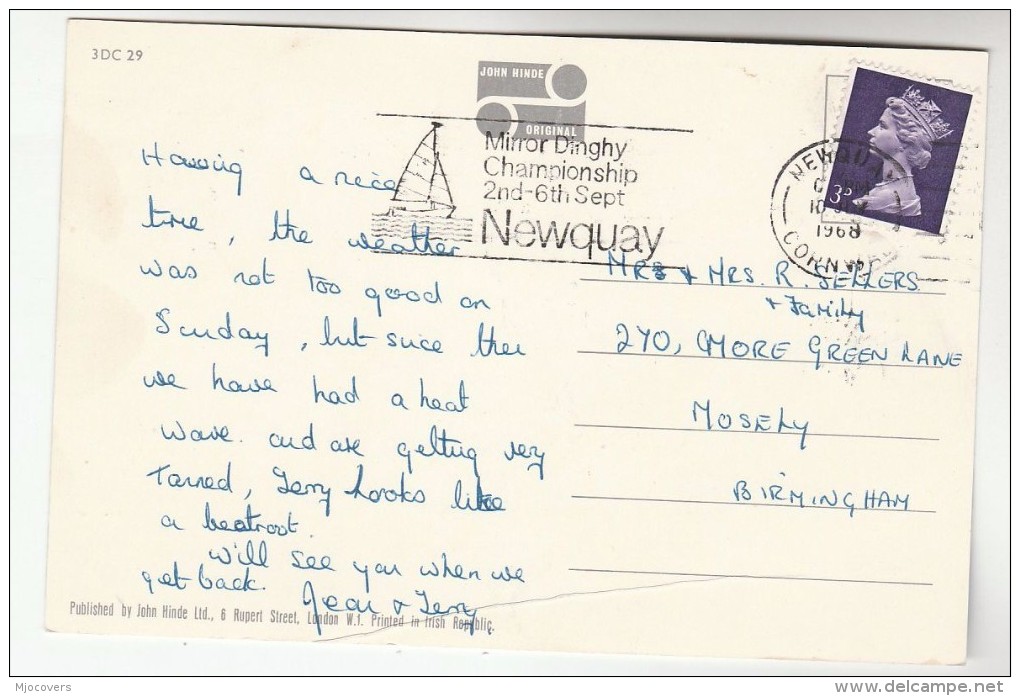 3DC 29
JOHN HINDE
ORIGINAL
Mirror Dinghy
Championship
2nd-6th Sept
Newquay
NEWQUAY
1968
CORNWALL
3D
Having a nice
time, the weather
was not too good on
Sunday, but since then
we have had a heat
wave. and are getting very
Tanned, Terry Looks like
a beatroot.
will see you when we
get back.
Jean & Terry
MR & MRS. R. SELLERS
& Family
270, CMORE GREEN LANE
MOSELY
BIRMINGHAM
Published by John Hinde Ltd., 6 Rupert Street, London W.1. Printed in Irish Republic.
Mjocovers
delcampe.net